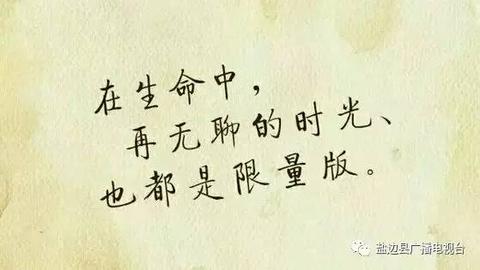 在生命中，
再无聊的时光、
也都是限量版。
盐边县广播电视台